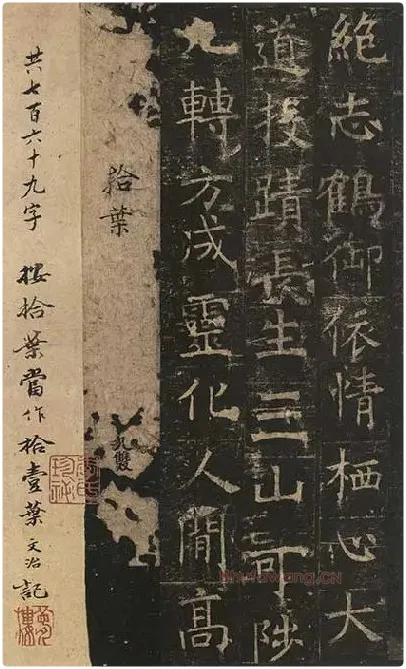 絕志鶴御依情栖心大
道投蹟長生三山可陟
九轉方成靈化人閒高
拾葉
共七百六十九字 按拾葉當作拾壹葉 文治記